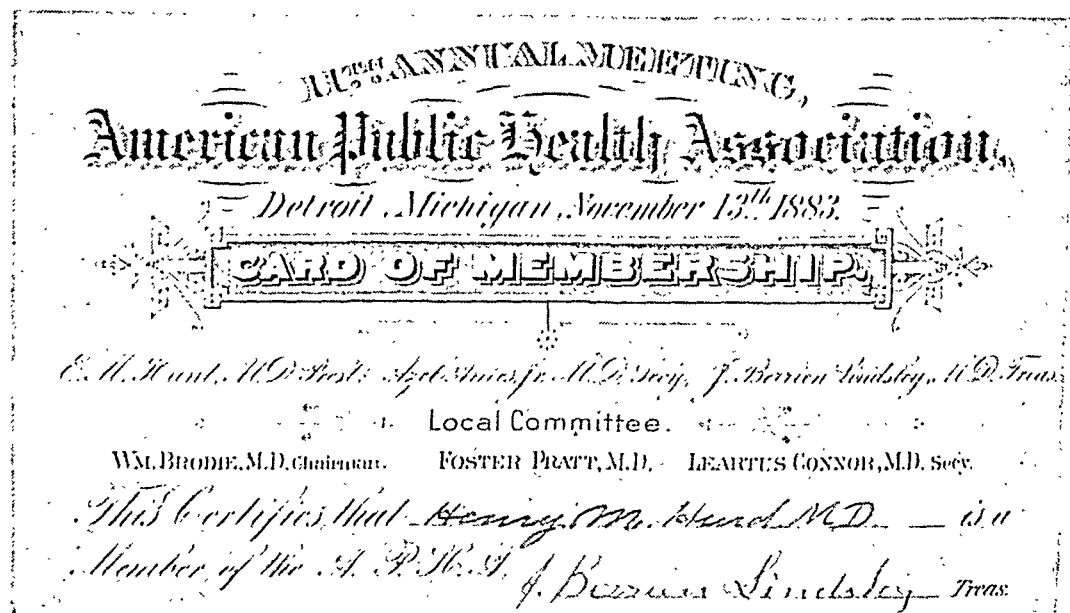 11TH ANNUAL MEETING,
American Public Health Association,
Detroit, Michigan, November 13th 1883.
CARD OF MEMBERSHIP.
E. M. Hunt, M.D. Prest. Azel Ames, Jr. M.D. Secy. J. Berrien Lindsley, M.D. Treas.
Local Committee.
WM. BRODIE, M.D. Chairman. FOSTER PRATT, M.D. LEARTUS CONNOR, M.D. Secy.
This Certifies that Henry M. Hurd M.D. is a
Member of the A. P. H. A. J. Berrien Lindsley Treas.